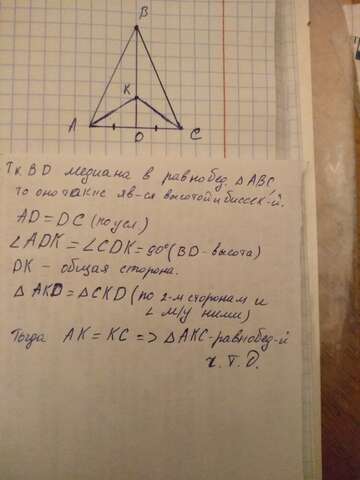 B
K
A
D
C
Т.к. BD медиана в равнобед. △ABC,
то оно также яв-ся высотой и биссек-й.
AD = DC (по усл.)
∠ADK = ∠CDK = 90° (BD - высота)
DK - общая сторона.
△AKD = △CKD (по 2-м сторонам и
∠ м/у ними)
Тогда AK = KC => △AKC - равнобед-й
ч.т.д.